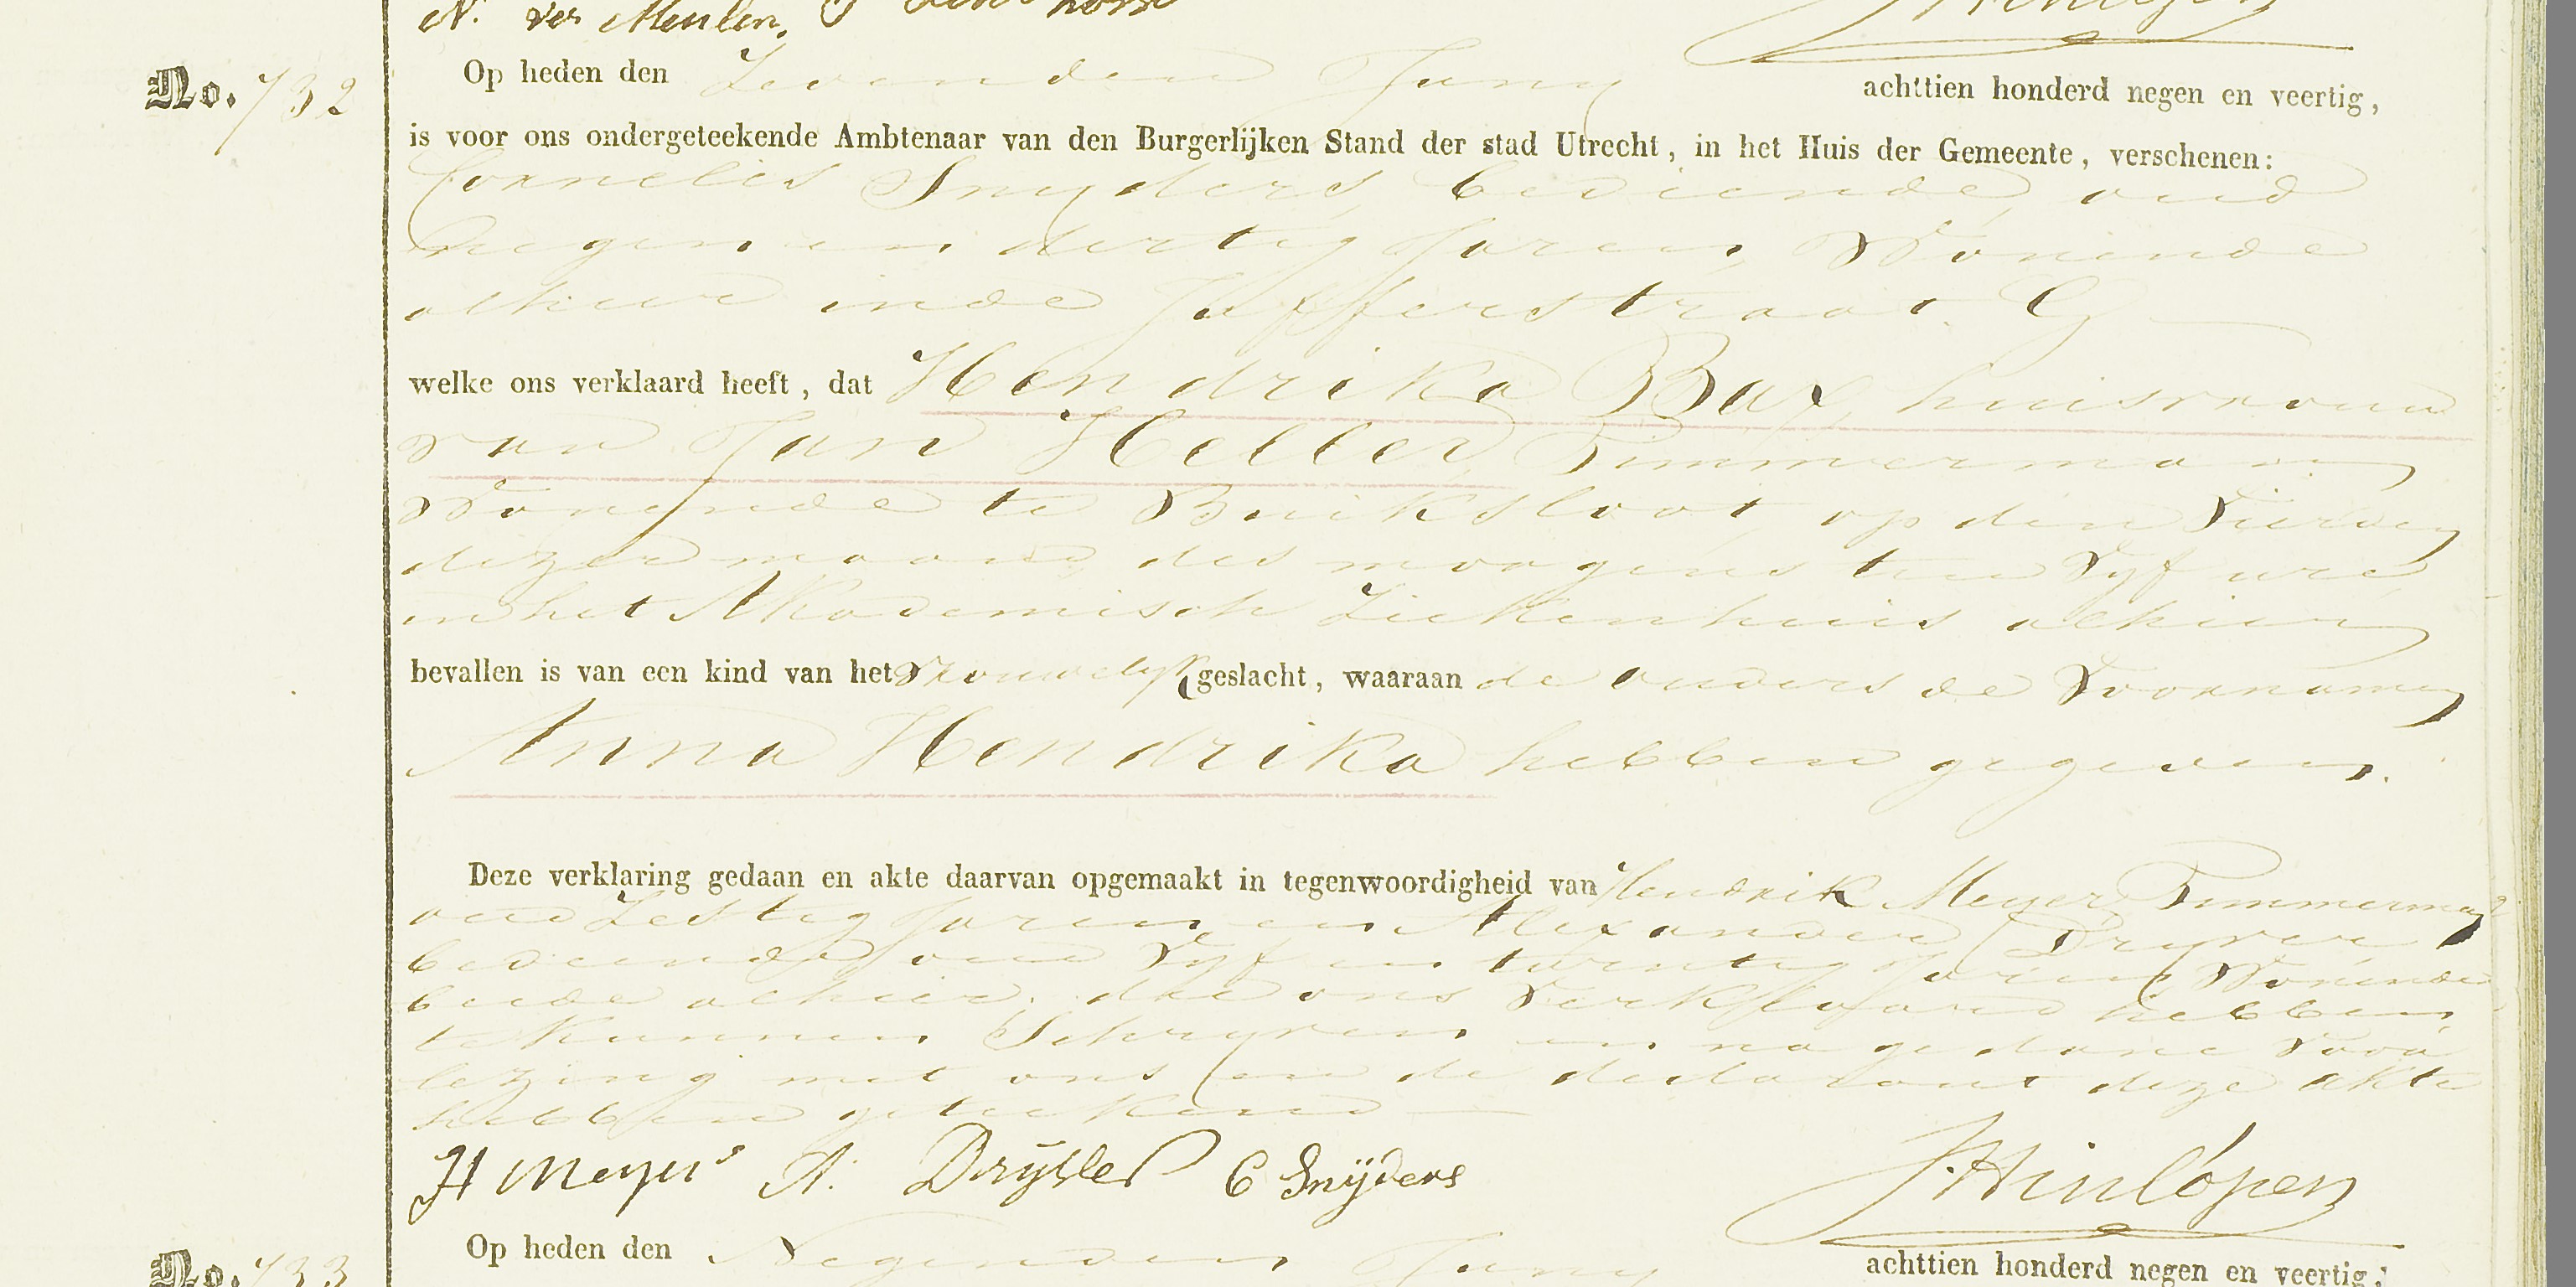 N. ver Meulen,
No. 732
Op heden den Zevenden Juny achttien honderd negen en veertig,
is voor ons ondergeteekende Ambtenaar van den Burgerlijken Stand der stad Utrecht, in het Huis der Gemeente, verschenen:
Cornelis Snyders, bediende, oud
negen en dertig Jaren, Wonende
alhier in de Jufferstraat G
welke ons verklaard heeft, dat Hendrika Bax, huisvrouw
van Jan Heller, Timmerman
Wonende te Buiksloot, op den Vierden
dezer maand des morgens ten Vyf ure
in het Akademisch Ziekenhuis alhier
bevallen is van een kind van het Vrouwelyk geslacht, waaraan de ouders de Voornamen
Anna Hendrika hebben gegeven.
Deze verklaring gedaan en akte daarvan opgemaakt in tegenwoordigheid van Hendrik Meyer, Timmerman
oud Zestig Jaren en Alexander
bediende, oud Vyf en twintig Jaren, Wonende
beide alhier, die ons Verklaard hebben
te kunnen Schryven en na gedane Voor
lezing met ons en de declarant deze akte
hebben geteekend
H Meyers A. C Snÿders J. Hinlópen
No. 733
Op heden den Negenden Juny achttien honderd negen en veertig,